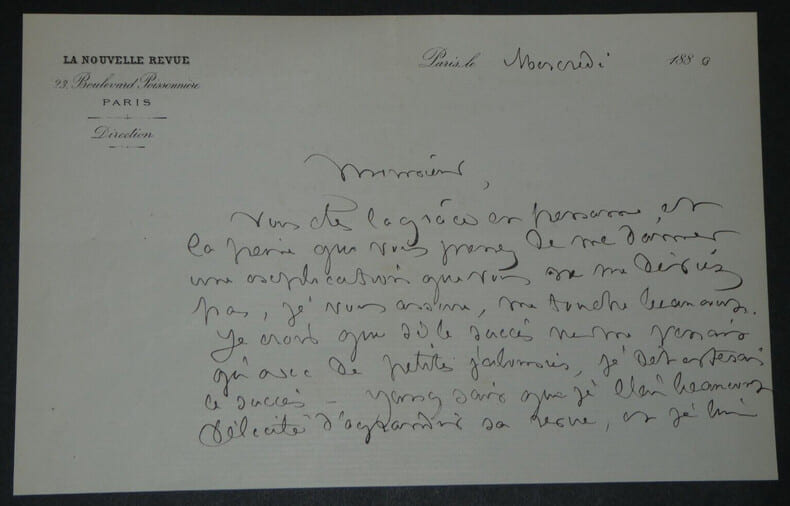 LA NOUVELLE REVUE
23, Boulevard Poissonnière
PARIS
Direction
Paris, le Mercredi 1880
Monsieur,
Vous êtes la grâce en personne, et
la peine que vous prenez de me donner
une explication que vous ne me deviez
pas, je vous assure, me touche beaucoup.
Je crois que si le succès ne me
qu'avec de petites jalousies, je détesterais
ce succès — sais que je l'ai beaucoup
félicité d'agrandir sa revue, et je lui